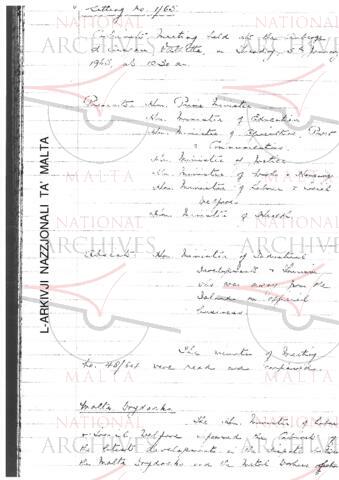 Sitting No. 1/65.
Cabinet Meeting held at the Auberge
d'Aragon, Valletta, on Tuesday, 5th January
1965, at 10.30 am.
Present: Hon. Prime Minister
Hon. Minister of Education
Hon. Minister of Agriculture, Power
& Communications.
Hon. Minister of Justice
Hon. Minister of Works & Housing
Hon. Minister of Labour & Social
Welfare
Hon. Minister of Health.
Absent: Hon. Minister of Industrial
Development & Tourism
who was away from the
Islands on official
business.
The minutes of Meeting
No. 48/64 were read and confirmed.
Malta Drydocks
The Hon. Minister of Labour
& Social Welfare informed the Cabinet of
the latest developments in the dispute between
the Malta Drydocks and the Metal Workers
L-ARKIVJI NAZZJONALI TA' MALTA
NATIONAL
ARCHIVES
MALTA